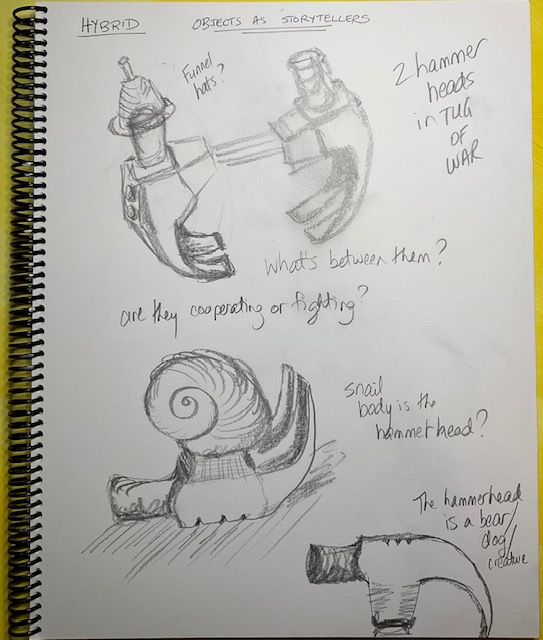 HYBRID
OBJECTS AS STORYTELLERS
Funnel
hats?
2 hammer
heads
in TUG
OF
WAR
what's between them?
are they cooperating or fighting?
snail
body is the
hammer head?
The hammerhead
is a bear/
dog/
creature